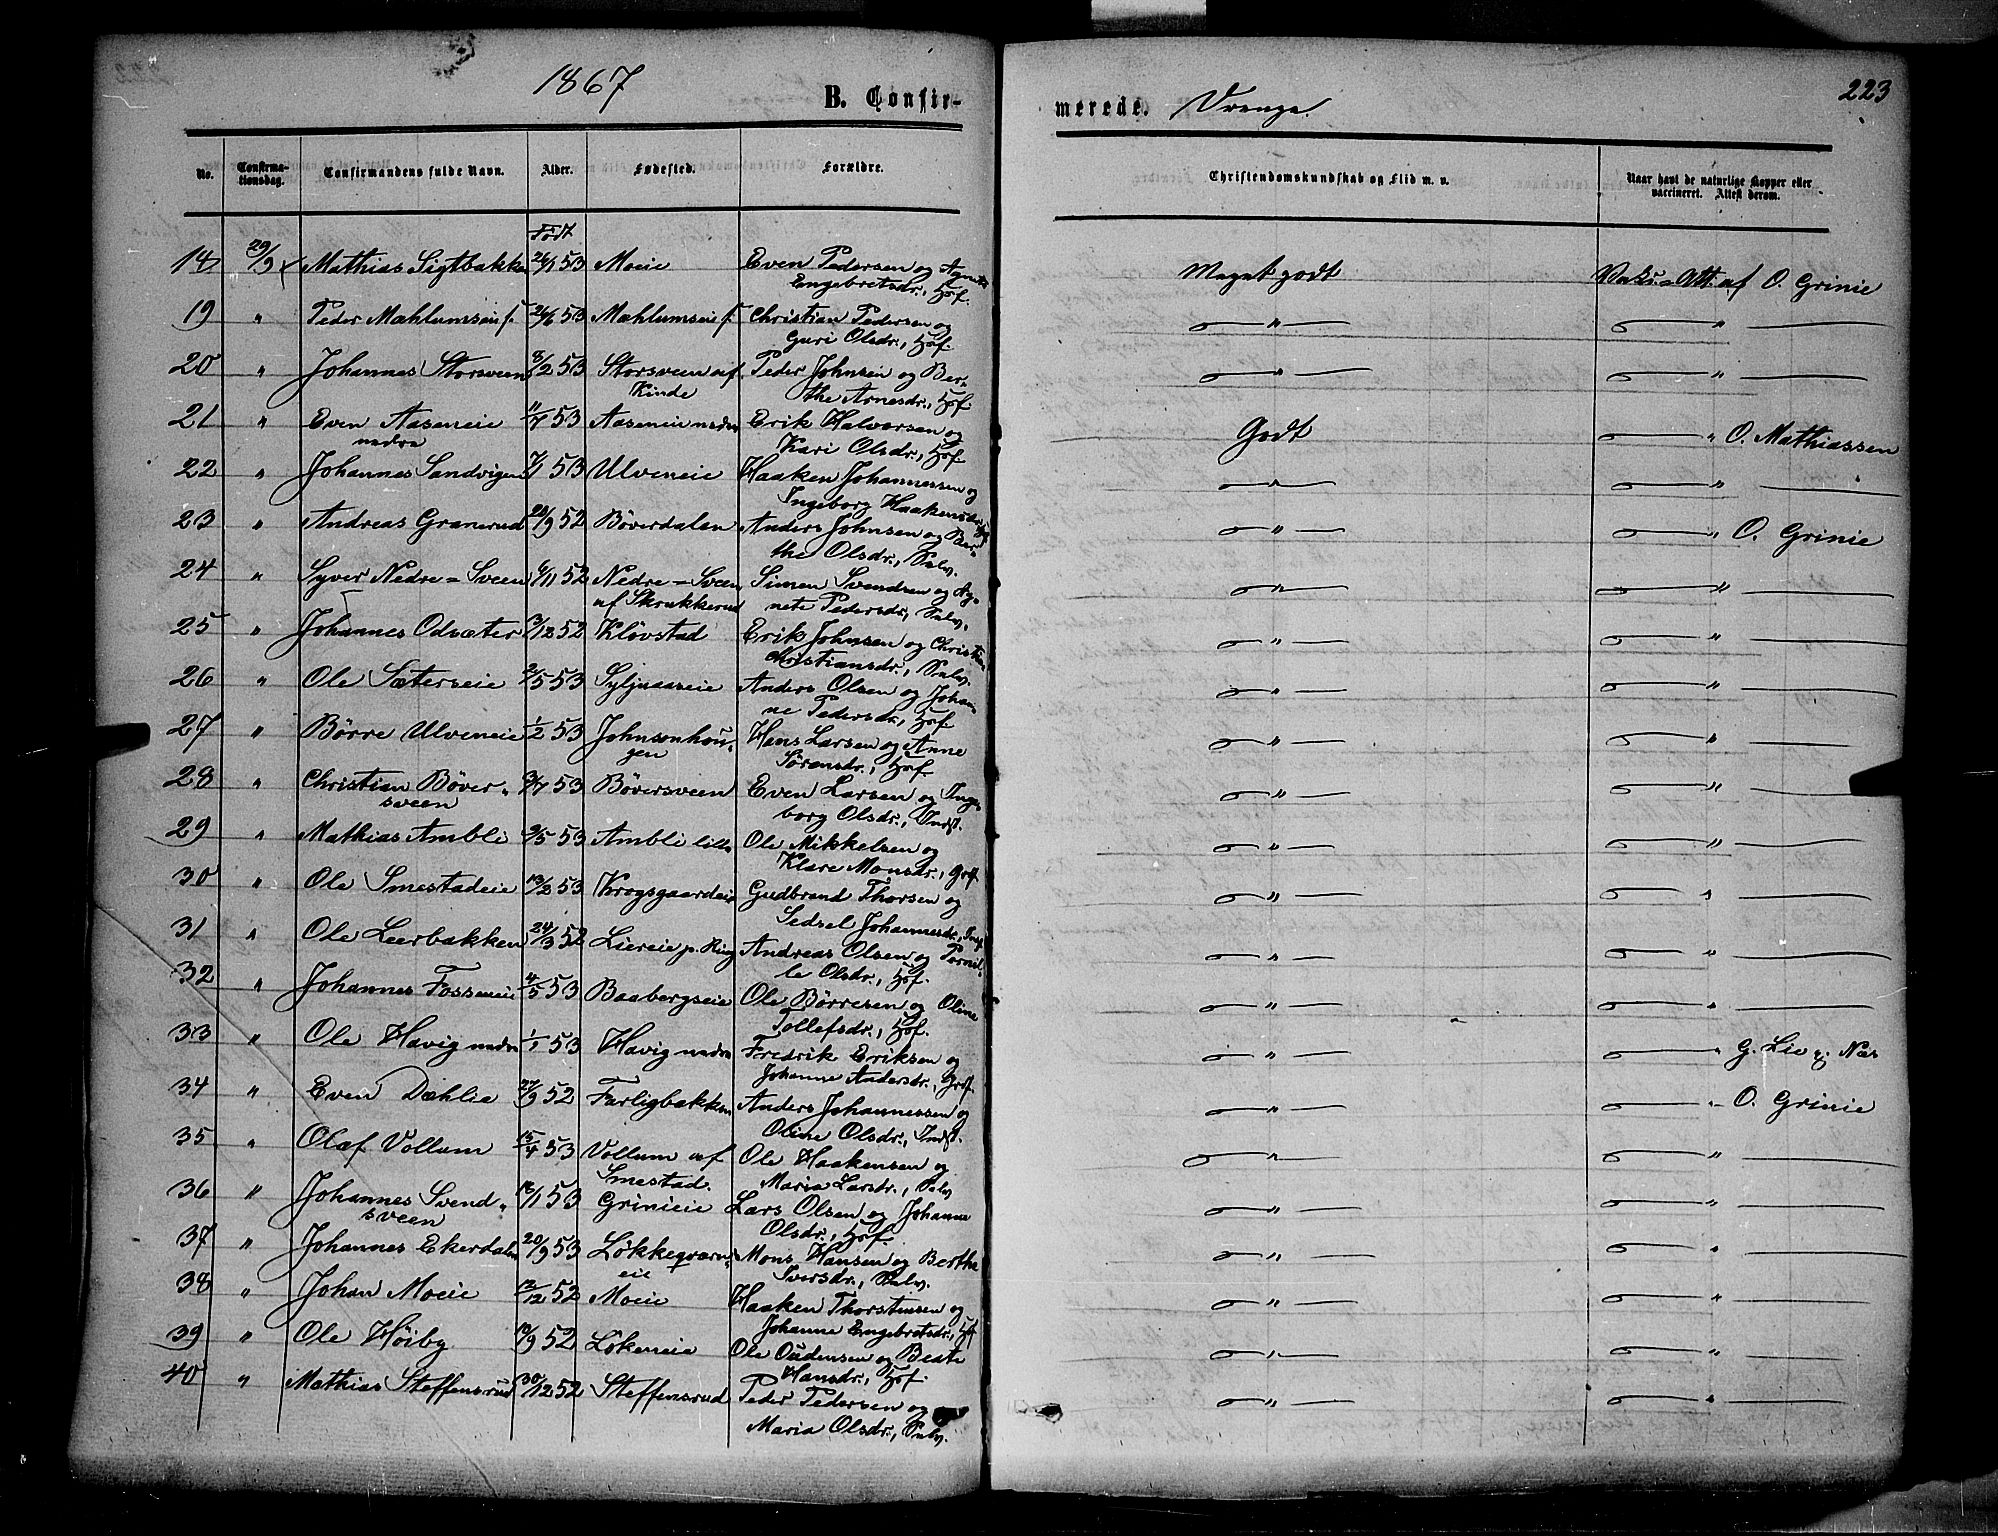 1867
B. Confirmerede. Drenge.
223
No. Confirmationsdag. Confirmandens fulde Navn. Alder. Fødested. Forældre. Christendomskundskab og Flid m. v. Naar havt de naturlige Kopper eller vaccineret. Attest derom.
Født
29/9 Mathias Sigtbakken 26/1 53 Moeie Even Pedersen og Agnethe Meget godt Vaks. Att. af O. Grinie
Engebretsdr., Hof.
19 " Peder Mæhlumseie 53 Mæhlumseie Christian Pedersen og " "
Guri Olsdr., Hof.
20 " Johannes Storsveen 8/2 53 Storsveen af Peder Johnsen og Ber- " "
Kinde the Arnesdr., Hof.
21 " Even Aaseneie 53 Aaseneie nedre Erik Halvorsen og Godt " O. Mathiassen
nedre Kari Olsdr., Hof
22 " Johannes Sandvigen 53 Ulveneie Haaken Johannessen og " "
Ingeborg Haakensdr.
23 " Andreas Granerud 52 Böverdalen Anders Johnsen og Ber- " " O. Grinie
the Olsdr., Balv.
24 " Syver Nedre=Sveen 6/11 52 Nedre=Sveen Simen Svendsen og Ag- " "
af Skrukkerud nete Pedersdr., Balv.
25 " Johannes Odsæter 52 Klövstad Erik Johnsen og " "
Christiansdr., Balv.
26 " Ole Sæterseie 2/5 53 Syljuaaseie Anders Olsen og Johan- " "
ne Pedersdr., Hof.
27 " Börre Ulveneie 1/2 53 Johnsonhou- Hans Larsen og Anne " "
gen Sörensdr., Hof.
28 " Christian Böver- 53 Böversveen Even Larsen og Inge- " "
sveen borg Olsdr., Indst.
29 " Mathias Ambli 53 Ambli lille Ole Mikkelsen og " "
Klare Monsdr.,
30 " Ole Smestadeie 53 Krogsgaardeie Gudbrand Thorsen og " "
Sedsel Johannesdr.,
31 " Ole Leerbakken 24/3 52 Liereie p. Ring Andreas Olsen og Pernil- " "
le Olsdr., Hof.
32 " Johannes Fosseneie 4/5 53 Baabergseie Ole Börresen og Oline " "
Tollefsdr., Hof.
33 " Ole Havig nedre 1/1 53 Havig nedre Fredrik Eriksen og " " G. Lie
Johanne Andersdr.,
34 " Even Dæhlie 52 Farligbakken Anders Johannessen og " " O. Grinie
Oline Olsdr., Indst.
35 " Olaf Vollum 15/4 53 Vollum af Ole Haakensen og " "
Smestad. Maria Larsdr., Balv
36 " Johannes Svend- 53 Grinieie Lars Olsen og Johanne " "
sveen Olsdr., Hof.
37 " Johannes Ekerdalen 20/9 53 Lökkegværn- Mons Hansen og Berthe " "
eie Iversdr., Balv.
38 " Johan Moeie 12/12 52 Moeie Haaken Thorstensen og " "
Johanne Engebretsdr., Hof
39 " Ole Höiby 52 Lökeneie Ole Oudensen og Beate " "
Hansdr., Hof.
40 " Mathias Steffensrud 30/12 52 Steffensrud Peder Pedersen og " "
Maria Olsdr., Balv.